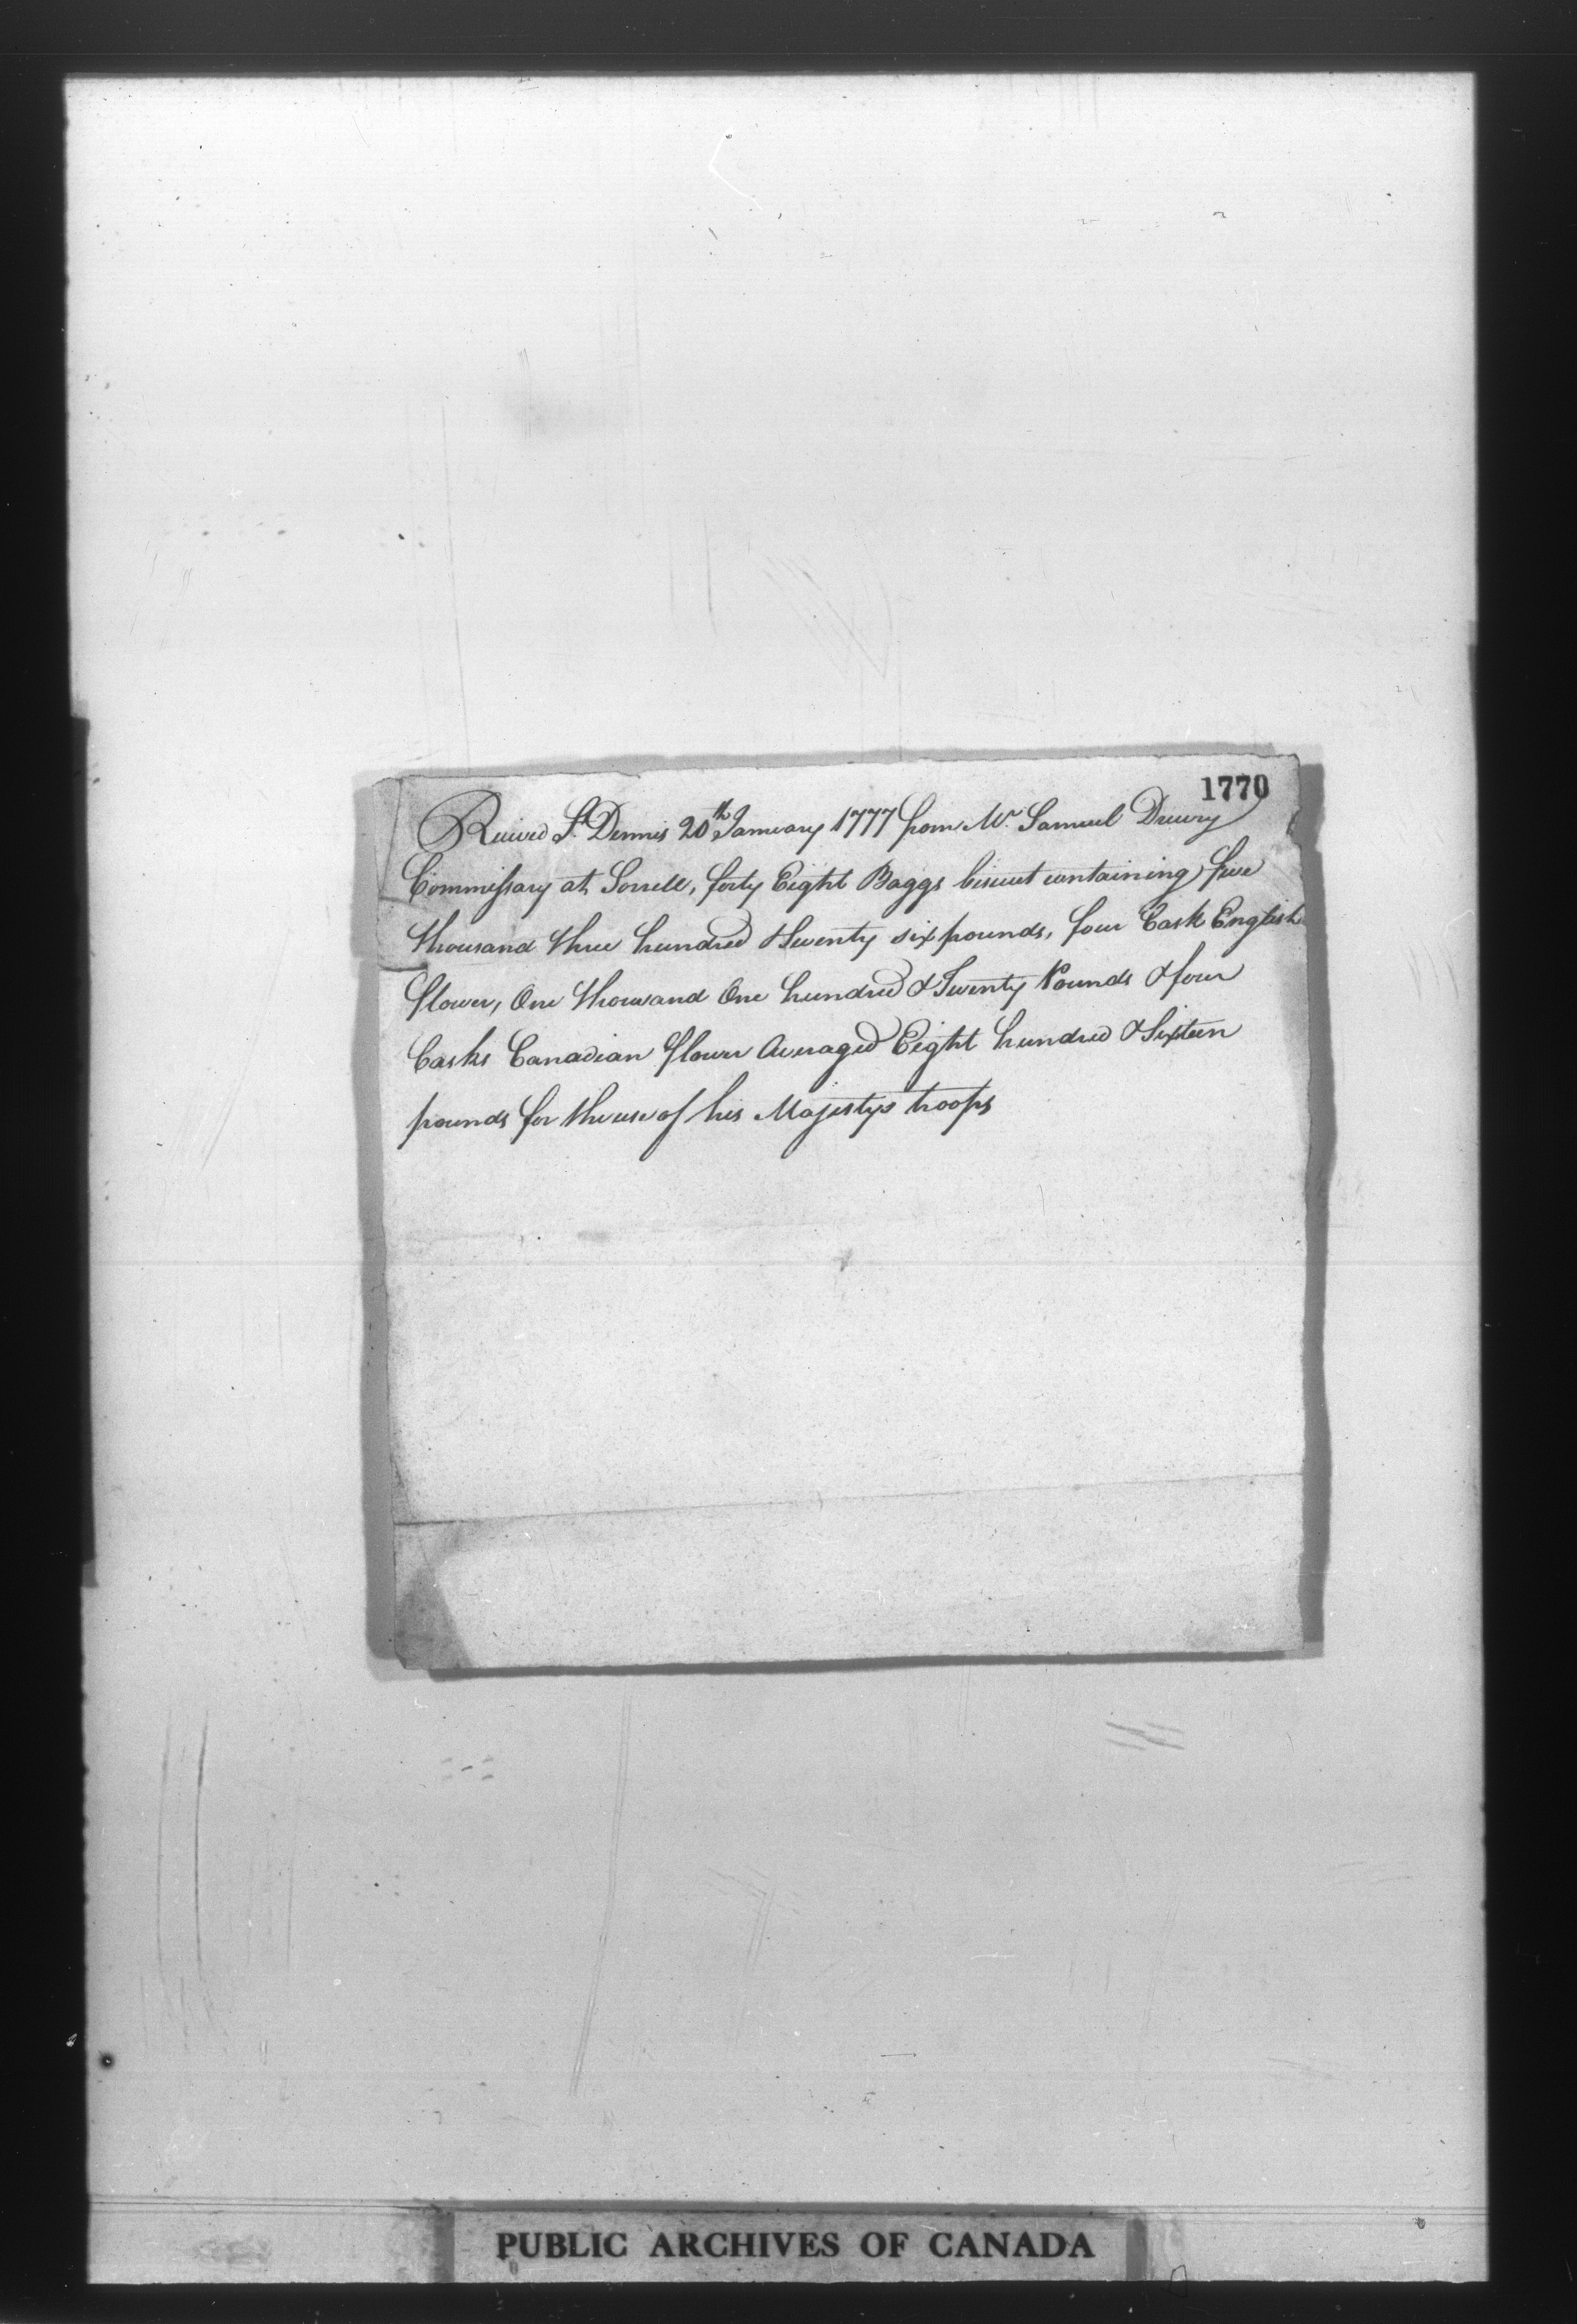 1770
Received St. Dennis 20th January 1777 from Mr. Samuel Drewry
Commissary at Sorrell, forty Eight Baggs biscuit containing five
thousand three hundred & twenty six pounds, four Cask English
flower, One thousand One hundred & Twenty Pounds & four
Casks Canadian flower Averaged Eight hundred & Sixteen
pounds for the use of his Majestys troops
PUBLIC ARCHIVES OF CANADA